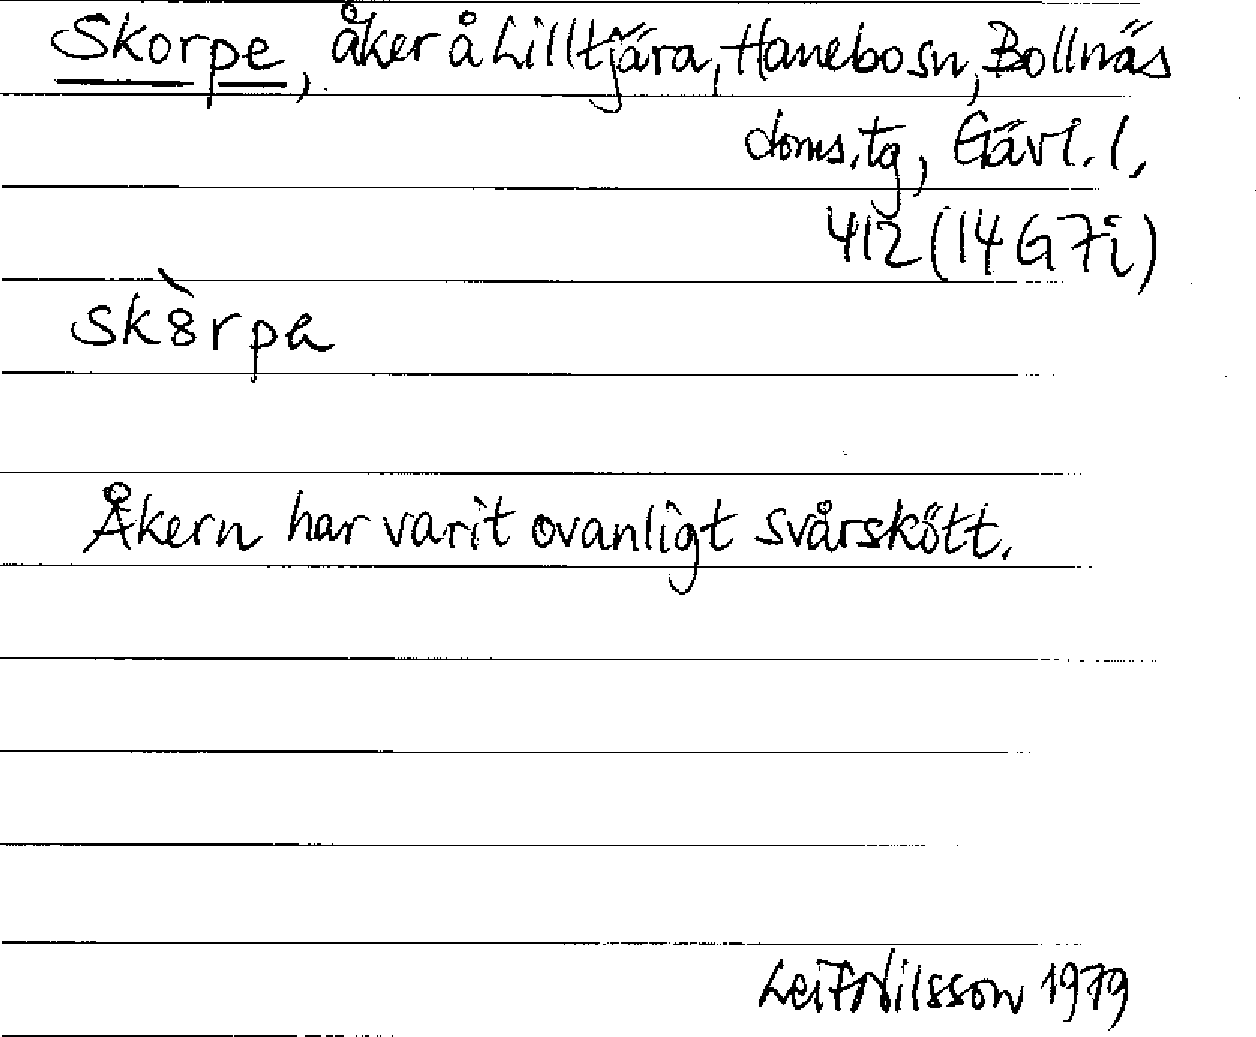 Skorpe, åker å Lilltjära, Hanebo sn, Bollnäs
doms.tg, Gävl. l,
412 (14 G 7i)
sk8̀rpa
Åkern har varit ovanligt svårskött.
Leif Nilsson 1979